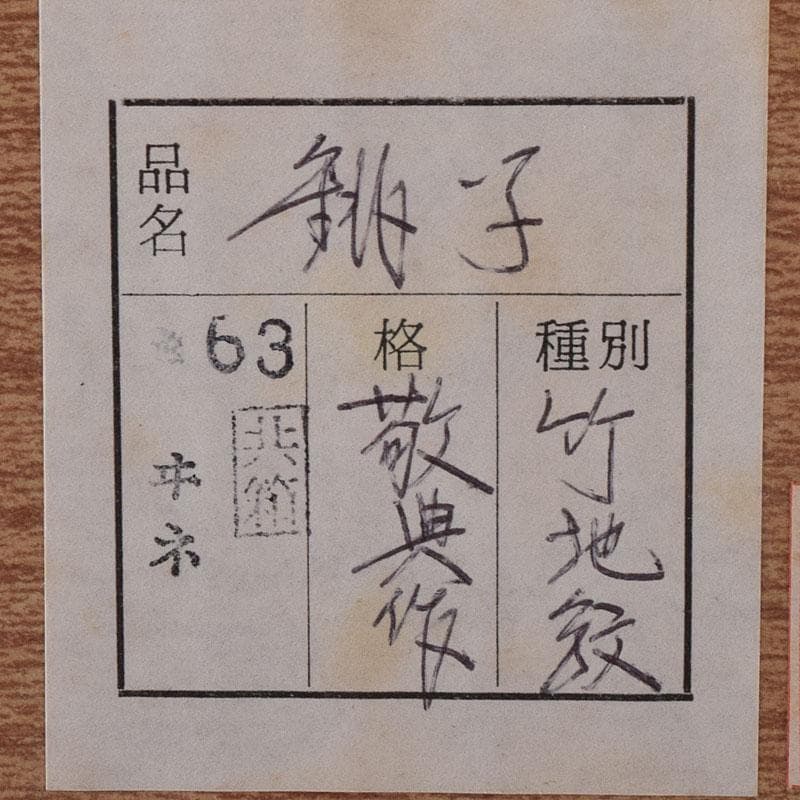 品名 銚子
種別 竹地紋
格 敬典作
63
共箱
ヰネ